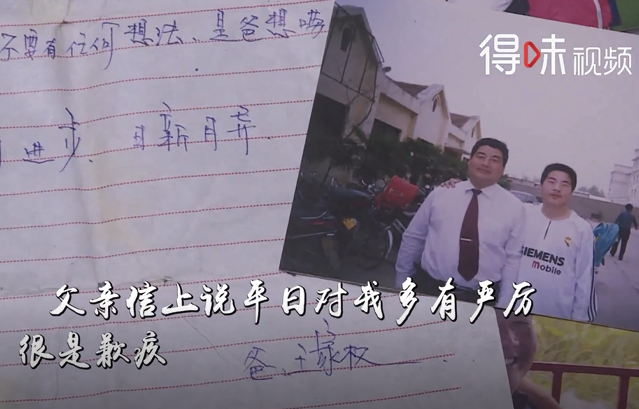 不要有任何想法、是爸想
得味视频
进步、日新月异.
SIEMENS
mobile
父亲信上说平日对我多有严厉
很是歉疚
爸、王家权